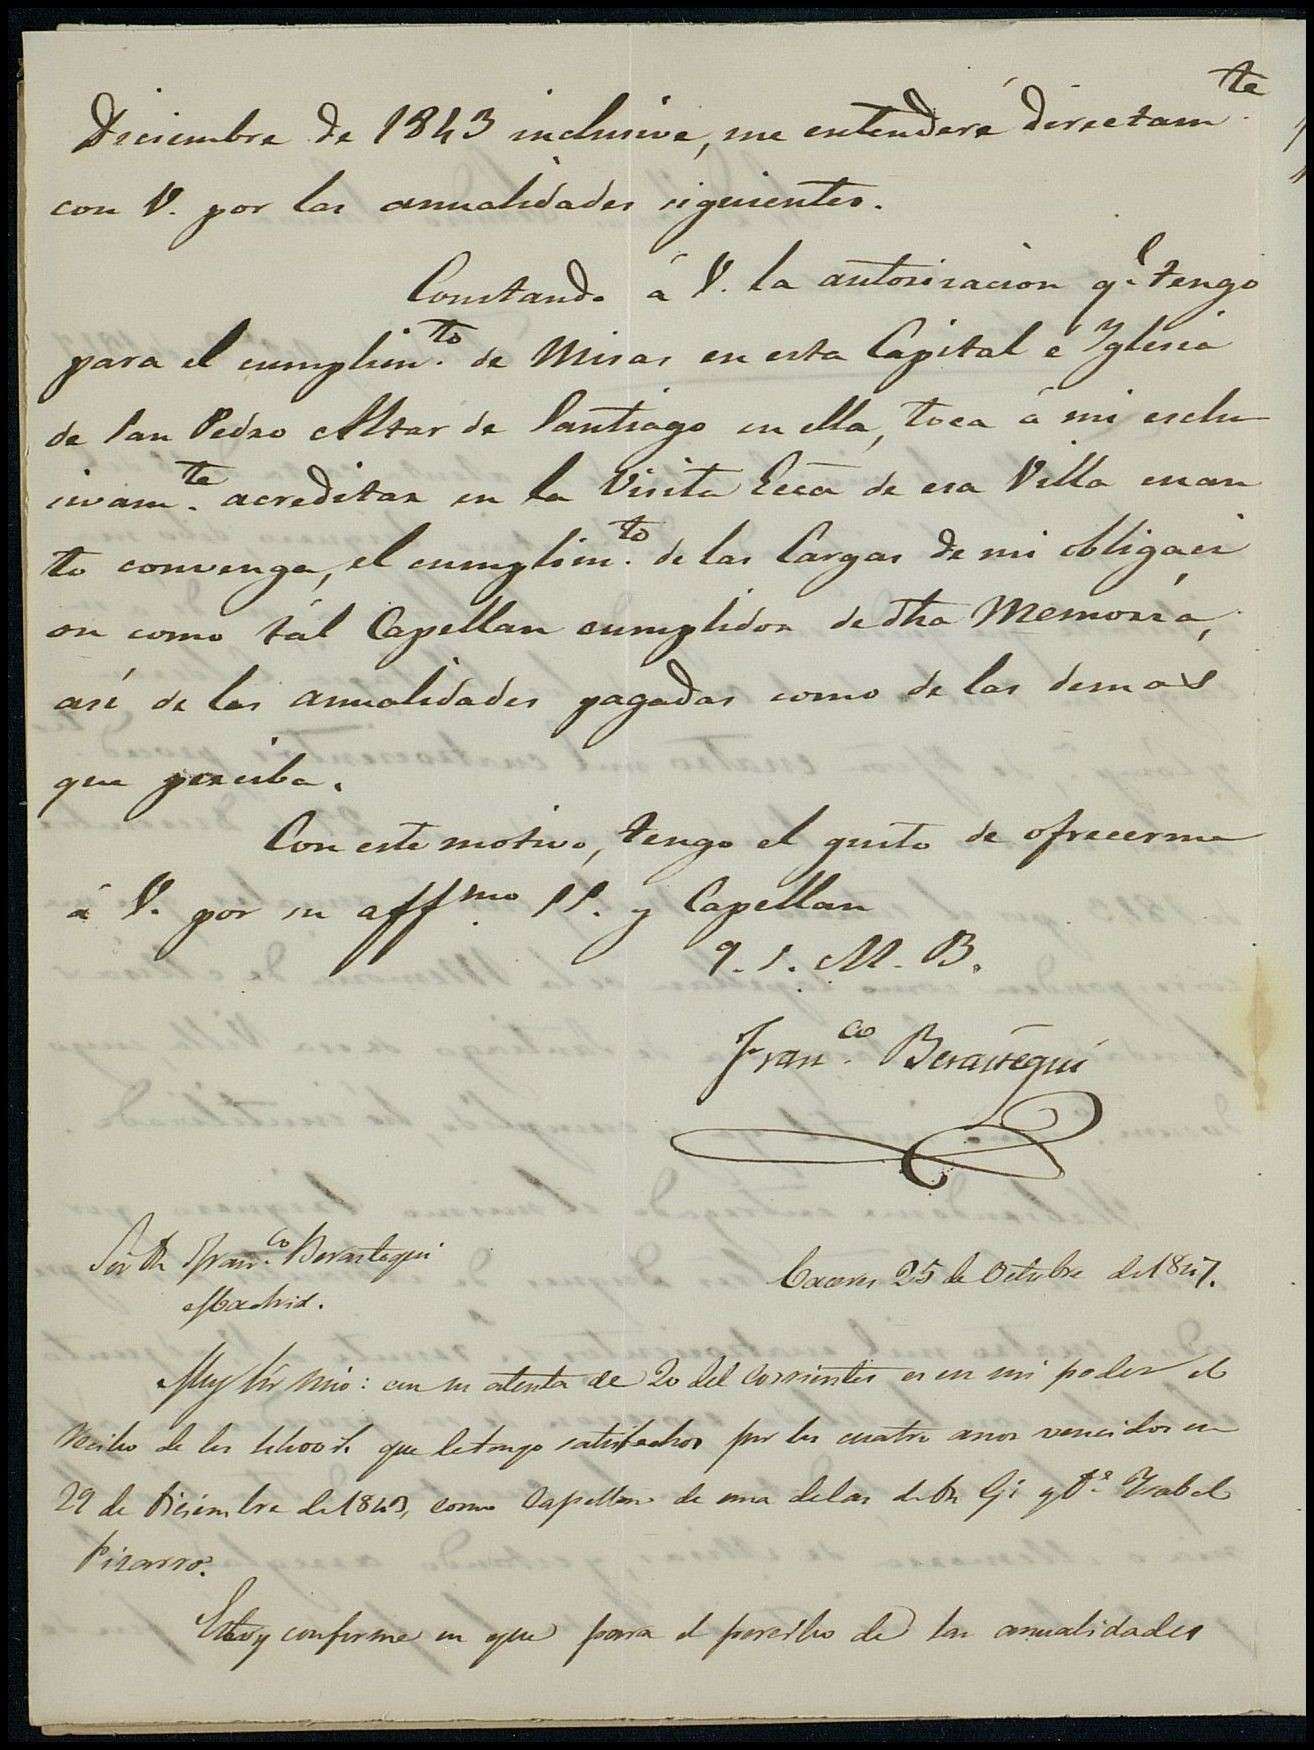 Diciembre de 1843 inclusive, me entenderé directam.te
con V. por las anualidades siguientes.
Constando á V. la autorizacion q.e tengo
para el cumplim.to de Misas en esta Capital é Yglesia
de San Pedro Altar de Santiago en ella, toca á mi esclu
sivam.te acreditar en la Visita Ecca de esa Villa cuan
to convenga, el cumplim.to de las Cargas de mi obligaci
on como tál Capellan cumplidor de dha Memoria,
asi de las anualidades pagadas como de las demas
que perciba.
Con este motivo, tengo el gusto de ofrecerme
á V. por su affmo. SS. y Capellan
q. s. M. B.
Fran.co Berástegui
Sor Dn Fran.co Berastegui
Madrid.
Caceres 25 de Octubre de 1847.
Muy Sor mio: con su atenta de 20 del corriente es en mi poder el
recibo de los 4400 rs. que le tengo satisfechos por los cuatro anos vencidos en
29 de Diciembre de 1843, como Capellan de una de las de Dn Gil y Da. Ysabel
Pizarro.
Estoy conforme en que para el percibo de las anualidades